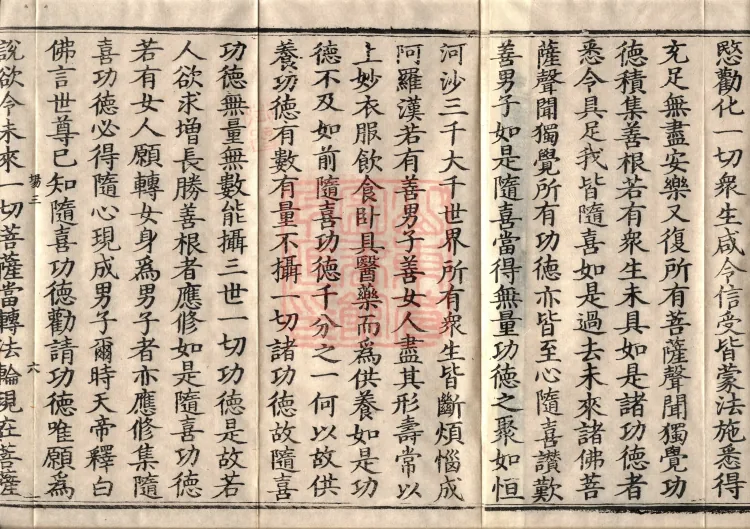 愍勸化一切衆生咸令信受皆蒙法施悉得
充足無盡安樂又復所有菩薩聲聞獨覺功
德積集善根若有衆生未具如是諸功德者
悉令具足我皆隨喜如是過去未來諸佛菩
薩聲聞獨覺所有功德亦皆至心隨喜讚歎
善男子如是隨喜當得無量功德之聚如恒
河沙三千大千世界所有衆生皆斷煩惱成
阿羅漢若有善男子善女人盡其形壽常以
上妙衣服飲食卧具醫藥而爲供養如是功
德不及如前隨喜功德千分之一何以故供
養功德有數有量不攝一切諸功德故隨喜
功德無量無數能攝三世一切功德是故若
人欲求增長勝善根者應修如是隨喜功德
若有女人願轉女身爲男子者亦應修集隨
喜功德必得隨心現成男子爾時天帝釋白
佛言世尊已知隨喜功德勸請功德唯願爲
三 六
說欲令未來一切菩薩當轉法輪現在菩薩